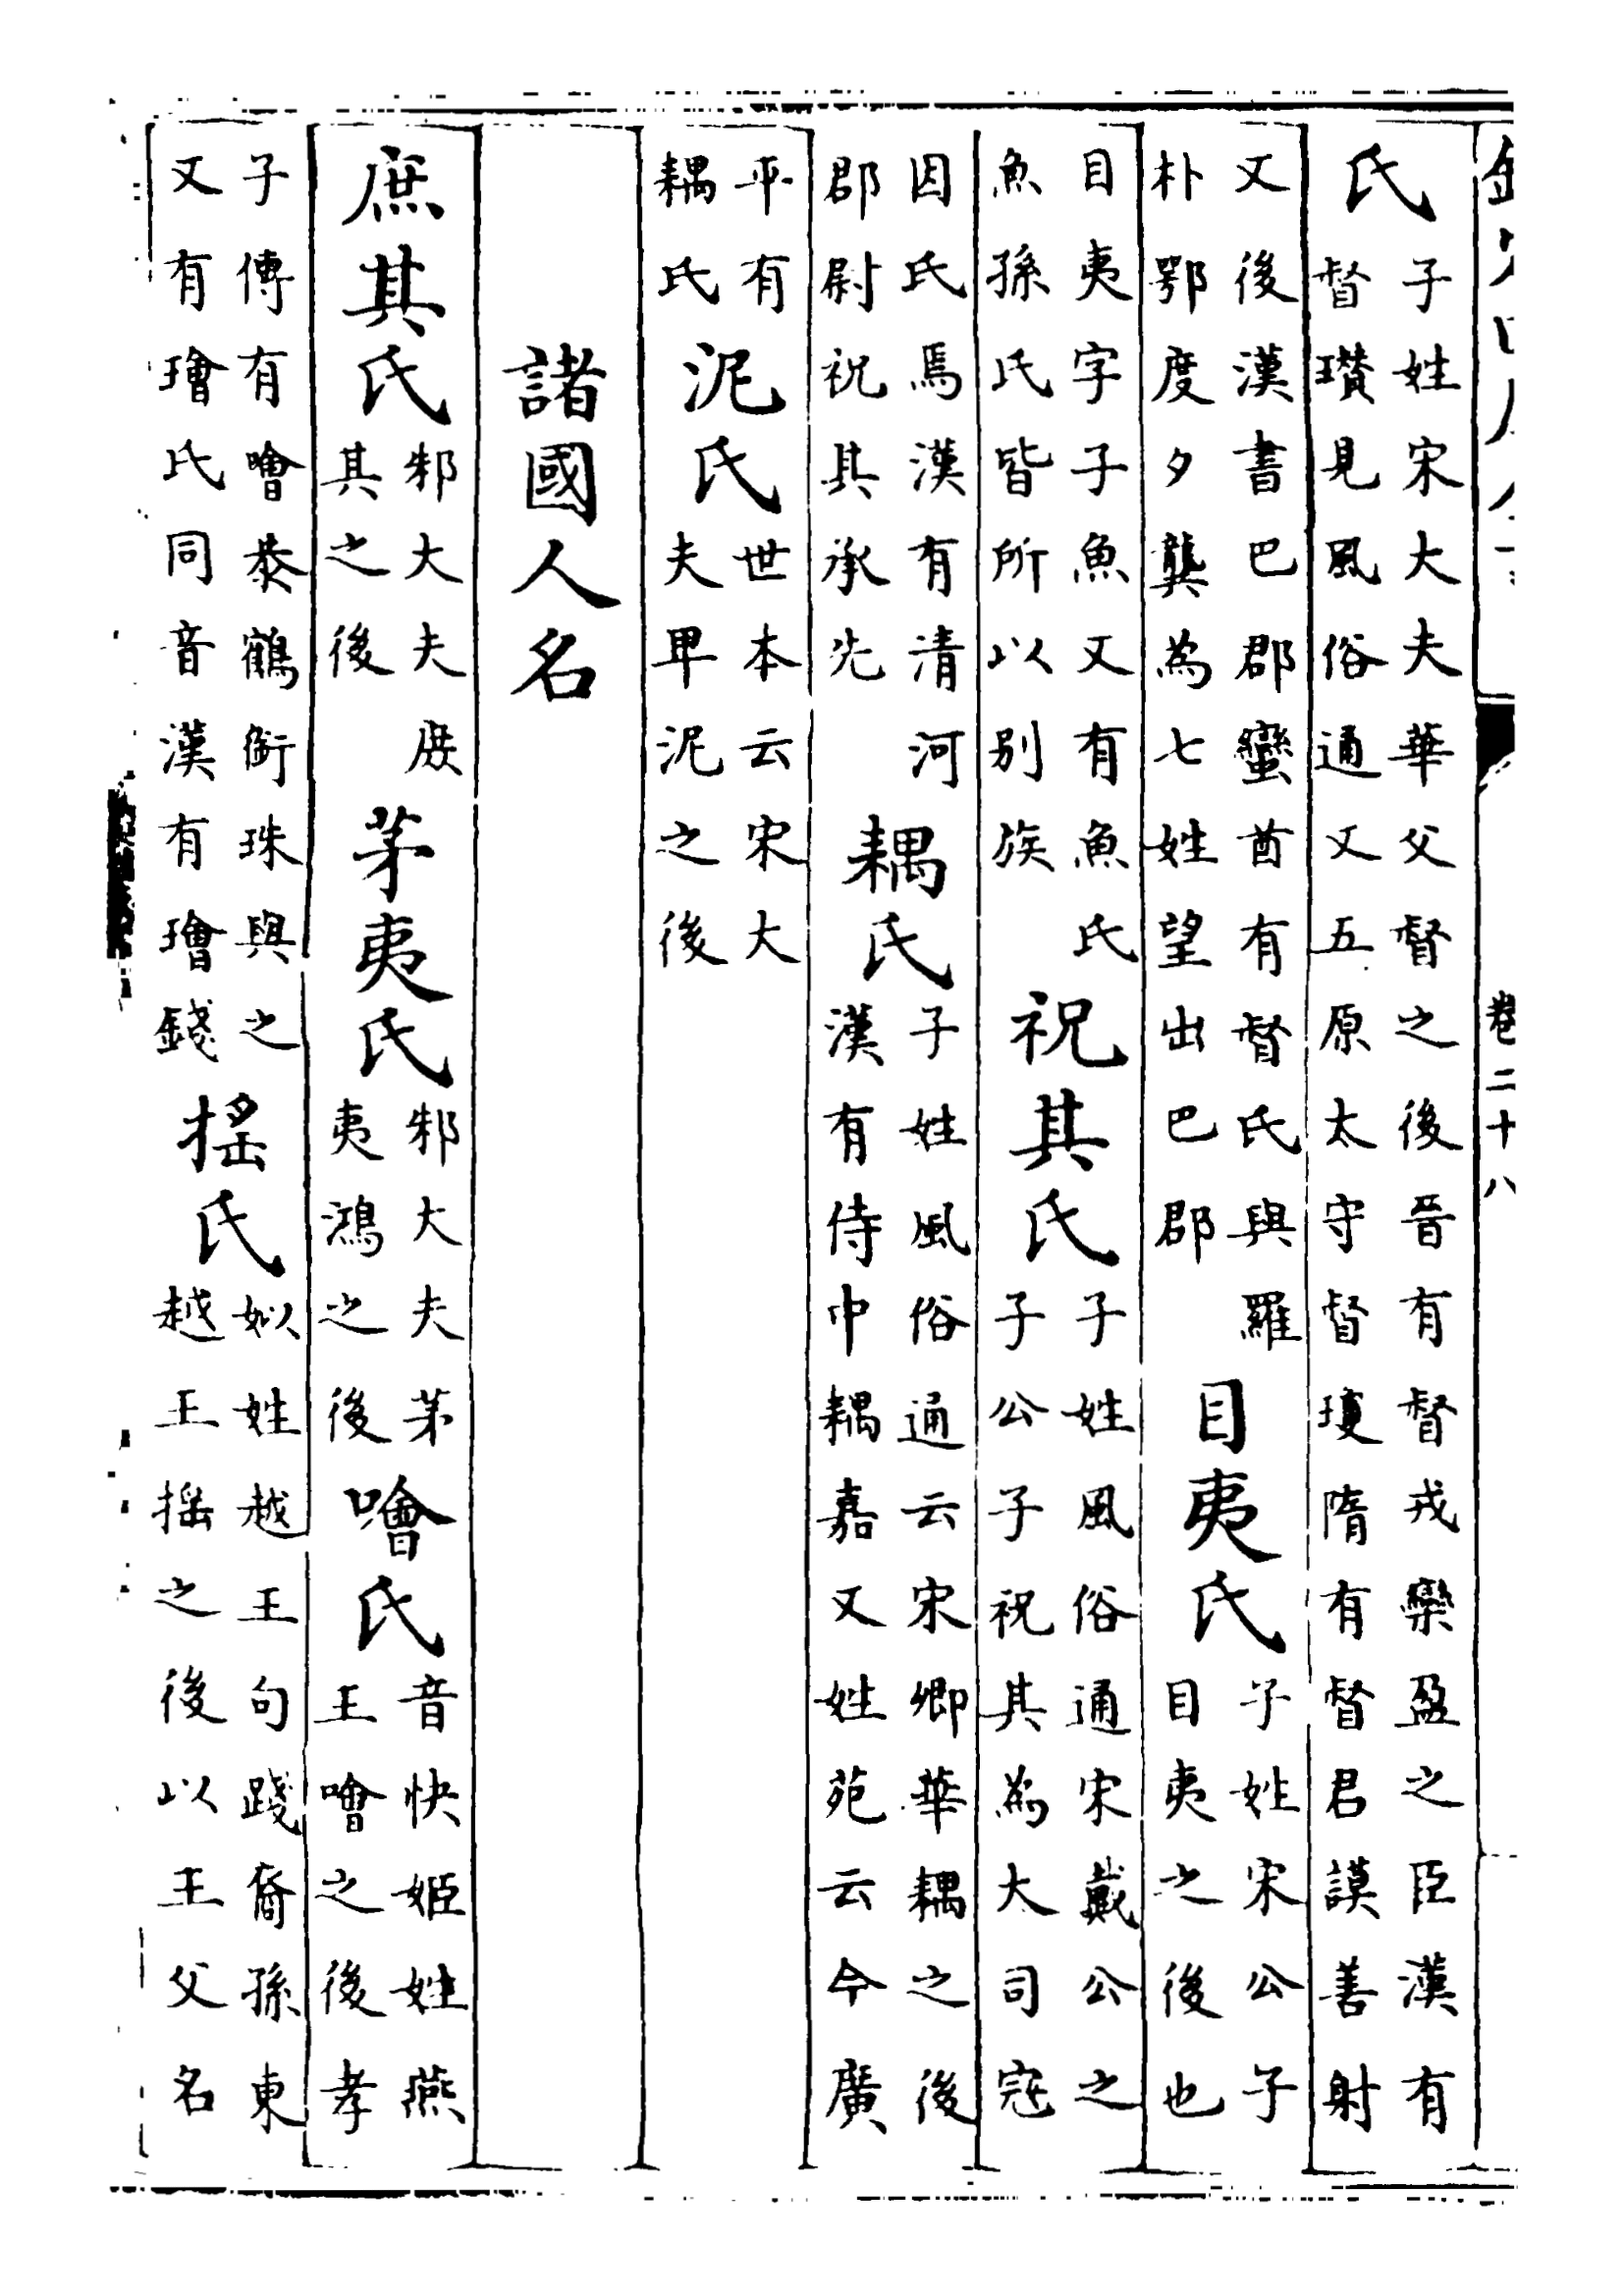 卷二十八
氏子姓宋大夫華父督之後晉有督戎欒盈之臣漢有
督瓚見風俗通又五原太守督瓊隋有督君謨善射
又後漢書巴郡蠻酋有督氏與羅
朴鄂度夕龔為七姓望出巴郡
目夷氏子姓宋公子
目夷之後也
目夷字子魚又有魚氏
魚孫氏皆所以別族
祝其氏子姓風俗通宋戴公之
子公子祝其為大司宼
因氏焉漢有清河
郡尉祝其承先
耦氏子姓風俗通云宋卿華耦之後
漢有侍中耦嘉又姓苑云今廣
平有
耦氏
泥氏世本云宋大
夫卑泥之後
諸國人名
庶其氏邾大夫庶
其之後
茅夷氏邾大夫茅
夷鴻之後
噲氏音快姬姓燕
王噲之後孝
子傳有噲叅鶴銜珠與之
又有璯氏同音漢有璯錢
揺氏姒姓越王句踐裔孫東
越王揺之後以王父名